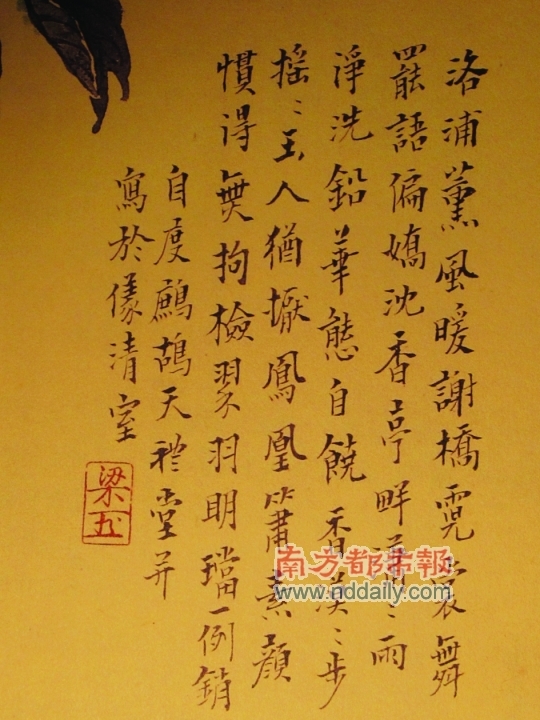 洛浦薰風暖謝橋霓裳舞
罷語偏嬌沈香亭畔〻雨
淨洗鉛華態自饒香漠〻步
搖〻玉人猶擫鳳凰簫素顏
慣得無拘檢翠羽明璫一例銷
自度鷓鴣天礼堂并
寫於儀清室
梁
南方都市報
www.nddaily.com